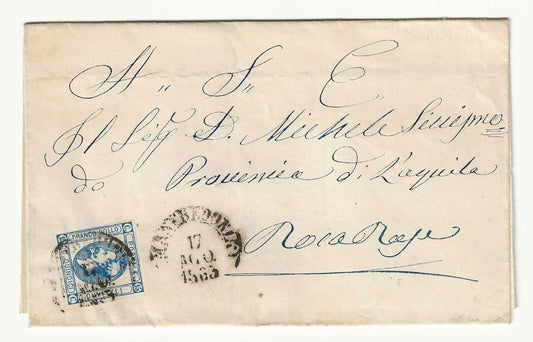 A" S" C"
Il Sig D. Michele
do Provincia di L'aquila
Roca Rase
FRANCO BOLLO
MANFREDONIA
17
AGO.
1863